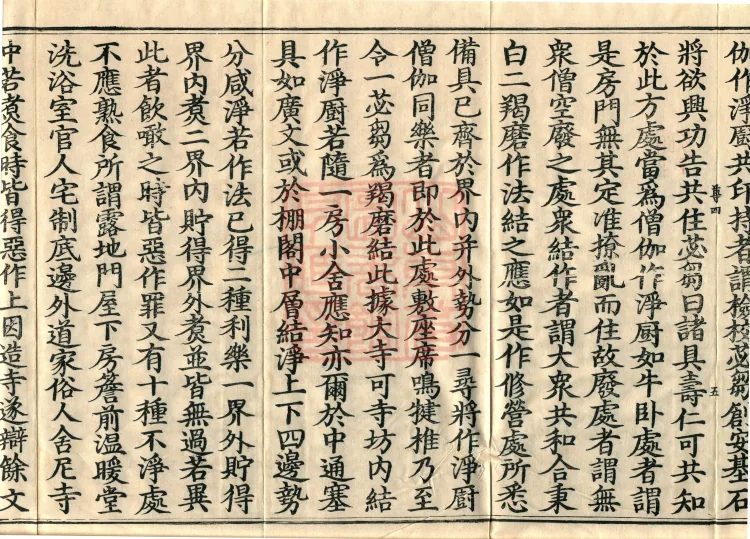 伽作淨廚共印持者謂授授苾芻創安基石
將欲興功告共住苾芻曰諸具壽仁可共知
於此方處當爲僧伽作淨廚如牛卧處者謂
是房門無其定准撩亂而住故廢處者謂無
衆僧空廢之處衆結作者謂大衆共和合秉
白二羯磨作法結之應如是作修營處所悉
備具已齊於界內并外勢分一尋將作淨廚
僧伽同樂者即於此處敷座席鳴揵椎乃至
令一苾芻爲羯磨結此據大寺可寺坊內結
作淨廚若隨一房小舍應知亦爾於中通塞
具如廣文或於棚閣中層結淨上下四邊勢
分咸淨若作法已得二種利樂一界外貯得
界內煑二界內貯得界外煑並皆無過若異
此者飲噉之時皆惡作罪又有十種不淨處
不應熟食所謂露地門屋下房簷前温暖堂
洗浴室官人宅制底邊外道家俗人舍尼寺
中若煑食時皆得惡作上因造寺遂辯餘文
尊四
五